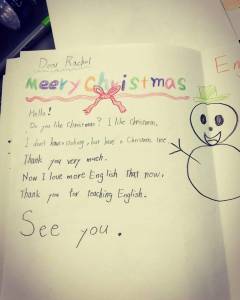 Dear Rachel
Meery Christmas
Hello!
Do you like Christmas? I like Christmas,
I don't have stocking, but have a Christmas tree.
Thank you very much.
Now I love more English that now,
Thank you for teaching English.
See you.
En